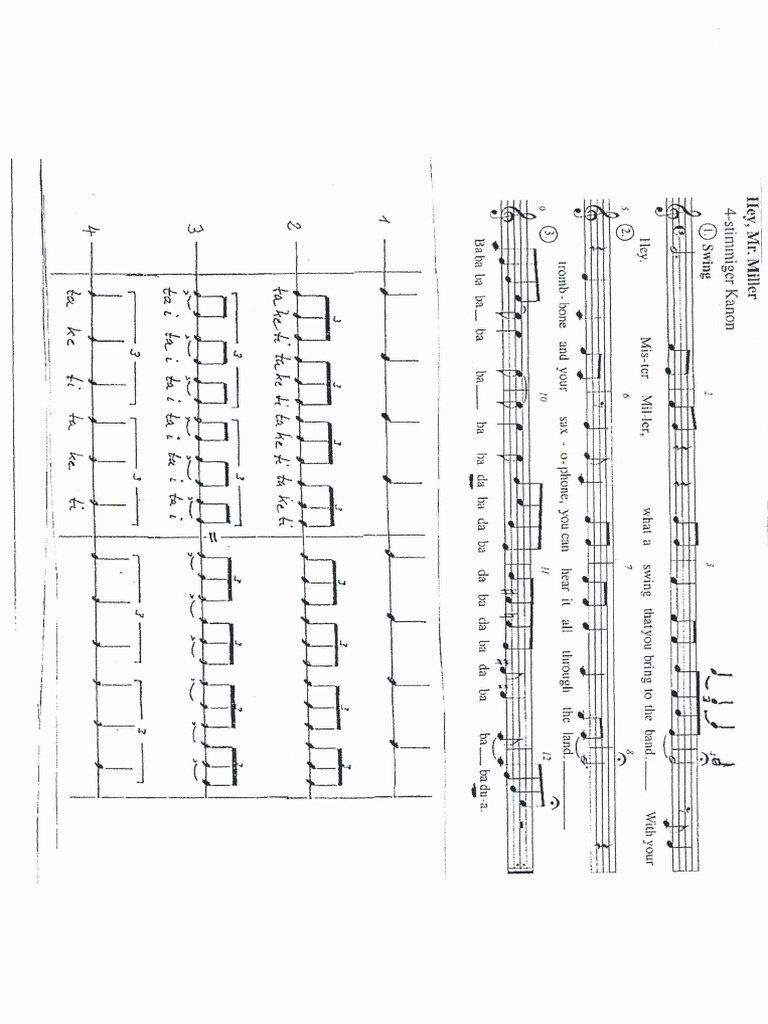 Hey, Mr. Miller
4-stimmiger Kanon
1. Swing
2
3
Hey. Mis-ter Mil-ler, what a swing that you bring to the band. With your
5
2.
6
7
8
tromb-bone and your sax-o-phone, you can hear it all through the land.
9
3.
10
11
12
Ba ba ba ba ba ba ba ba da ba da ba da ba da ba da ba ba ba du-a.
1
2
3 3 3 3 3 3 3 3
ta ke ti ta ke ti ta ke ti ta ke ti
3
3 3 = 3 3 3 3
ta i ta i ta i ta i ta i ta i
4
3 3 3 3
ta ke ti ta ke ti